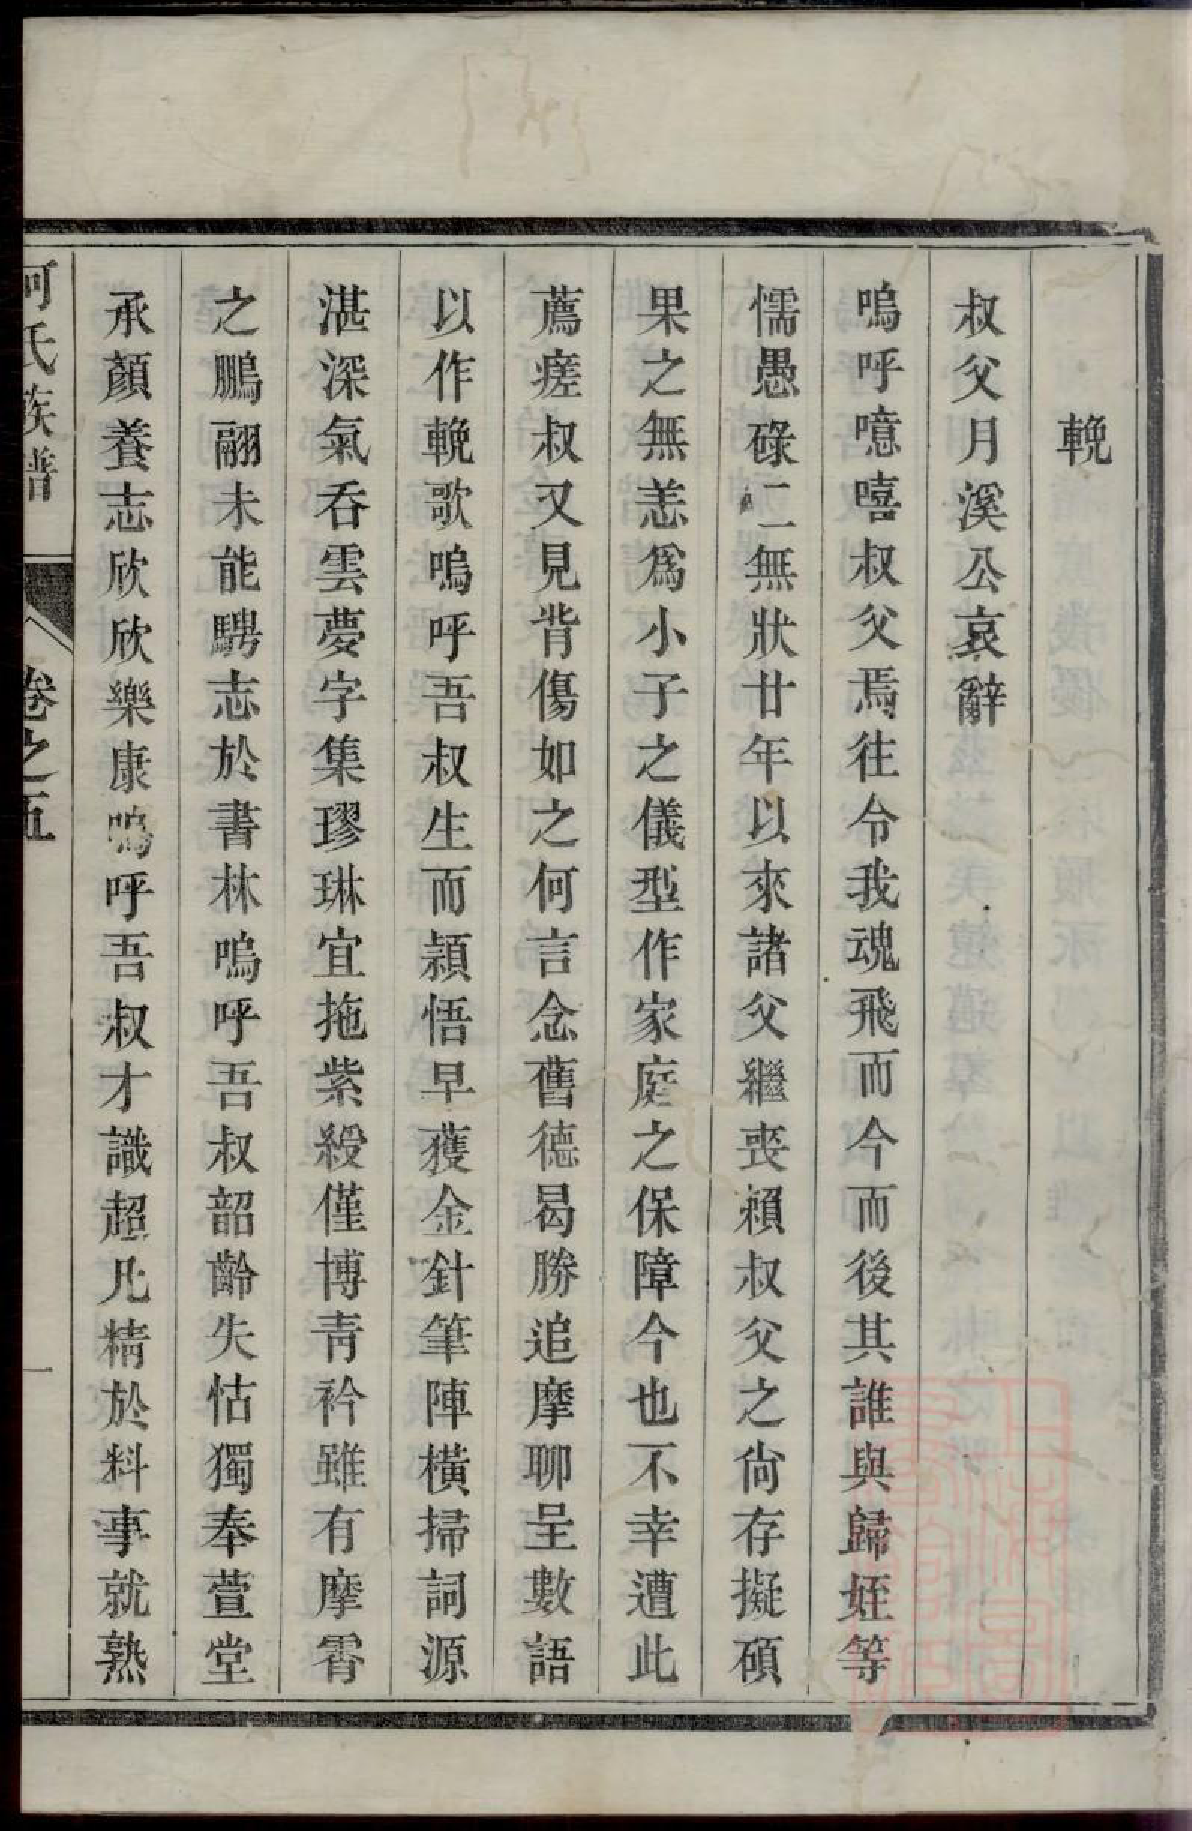 輓
叔父月溪公哀辭
嗚呼噫嘻叔父焉往令我魂飛而今而後其誰與歸姪等
懦愚碌二無狀廿年以來諸父繼丧賴叔父之尙存擬碩
果之無恙爲小子之儀型作家庭之保障今也不幸遭此
薦瘥叔又見背傷如之何言念舊德曷勝追摩聊呈數語
以作輓歌嗚呼吾叔生而穎悟早獲金針筆陣橫掃詞源
湛深氣吞雲夢字集璆琳宜拖紫綬僅博青衿雖有摩霄
之鵬翮未能騁志於書林嗚呼吾叔韶齡失怙獨奉萱堂
承顏養志欣欣樂康嗚呼吾叔才識超凡精於料事就熟
何氏族譜
卷之五
一